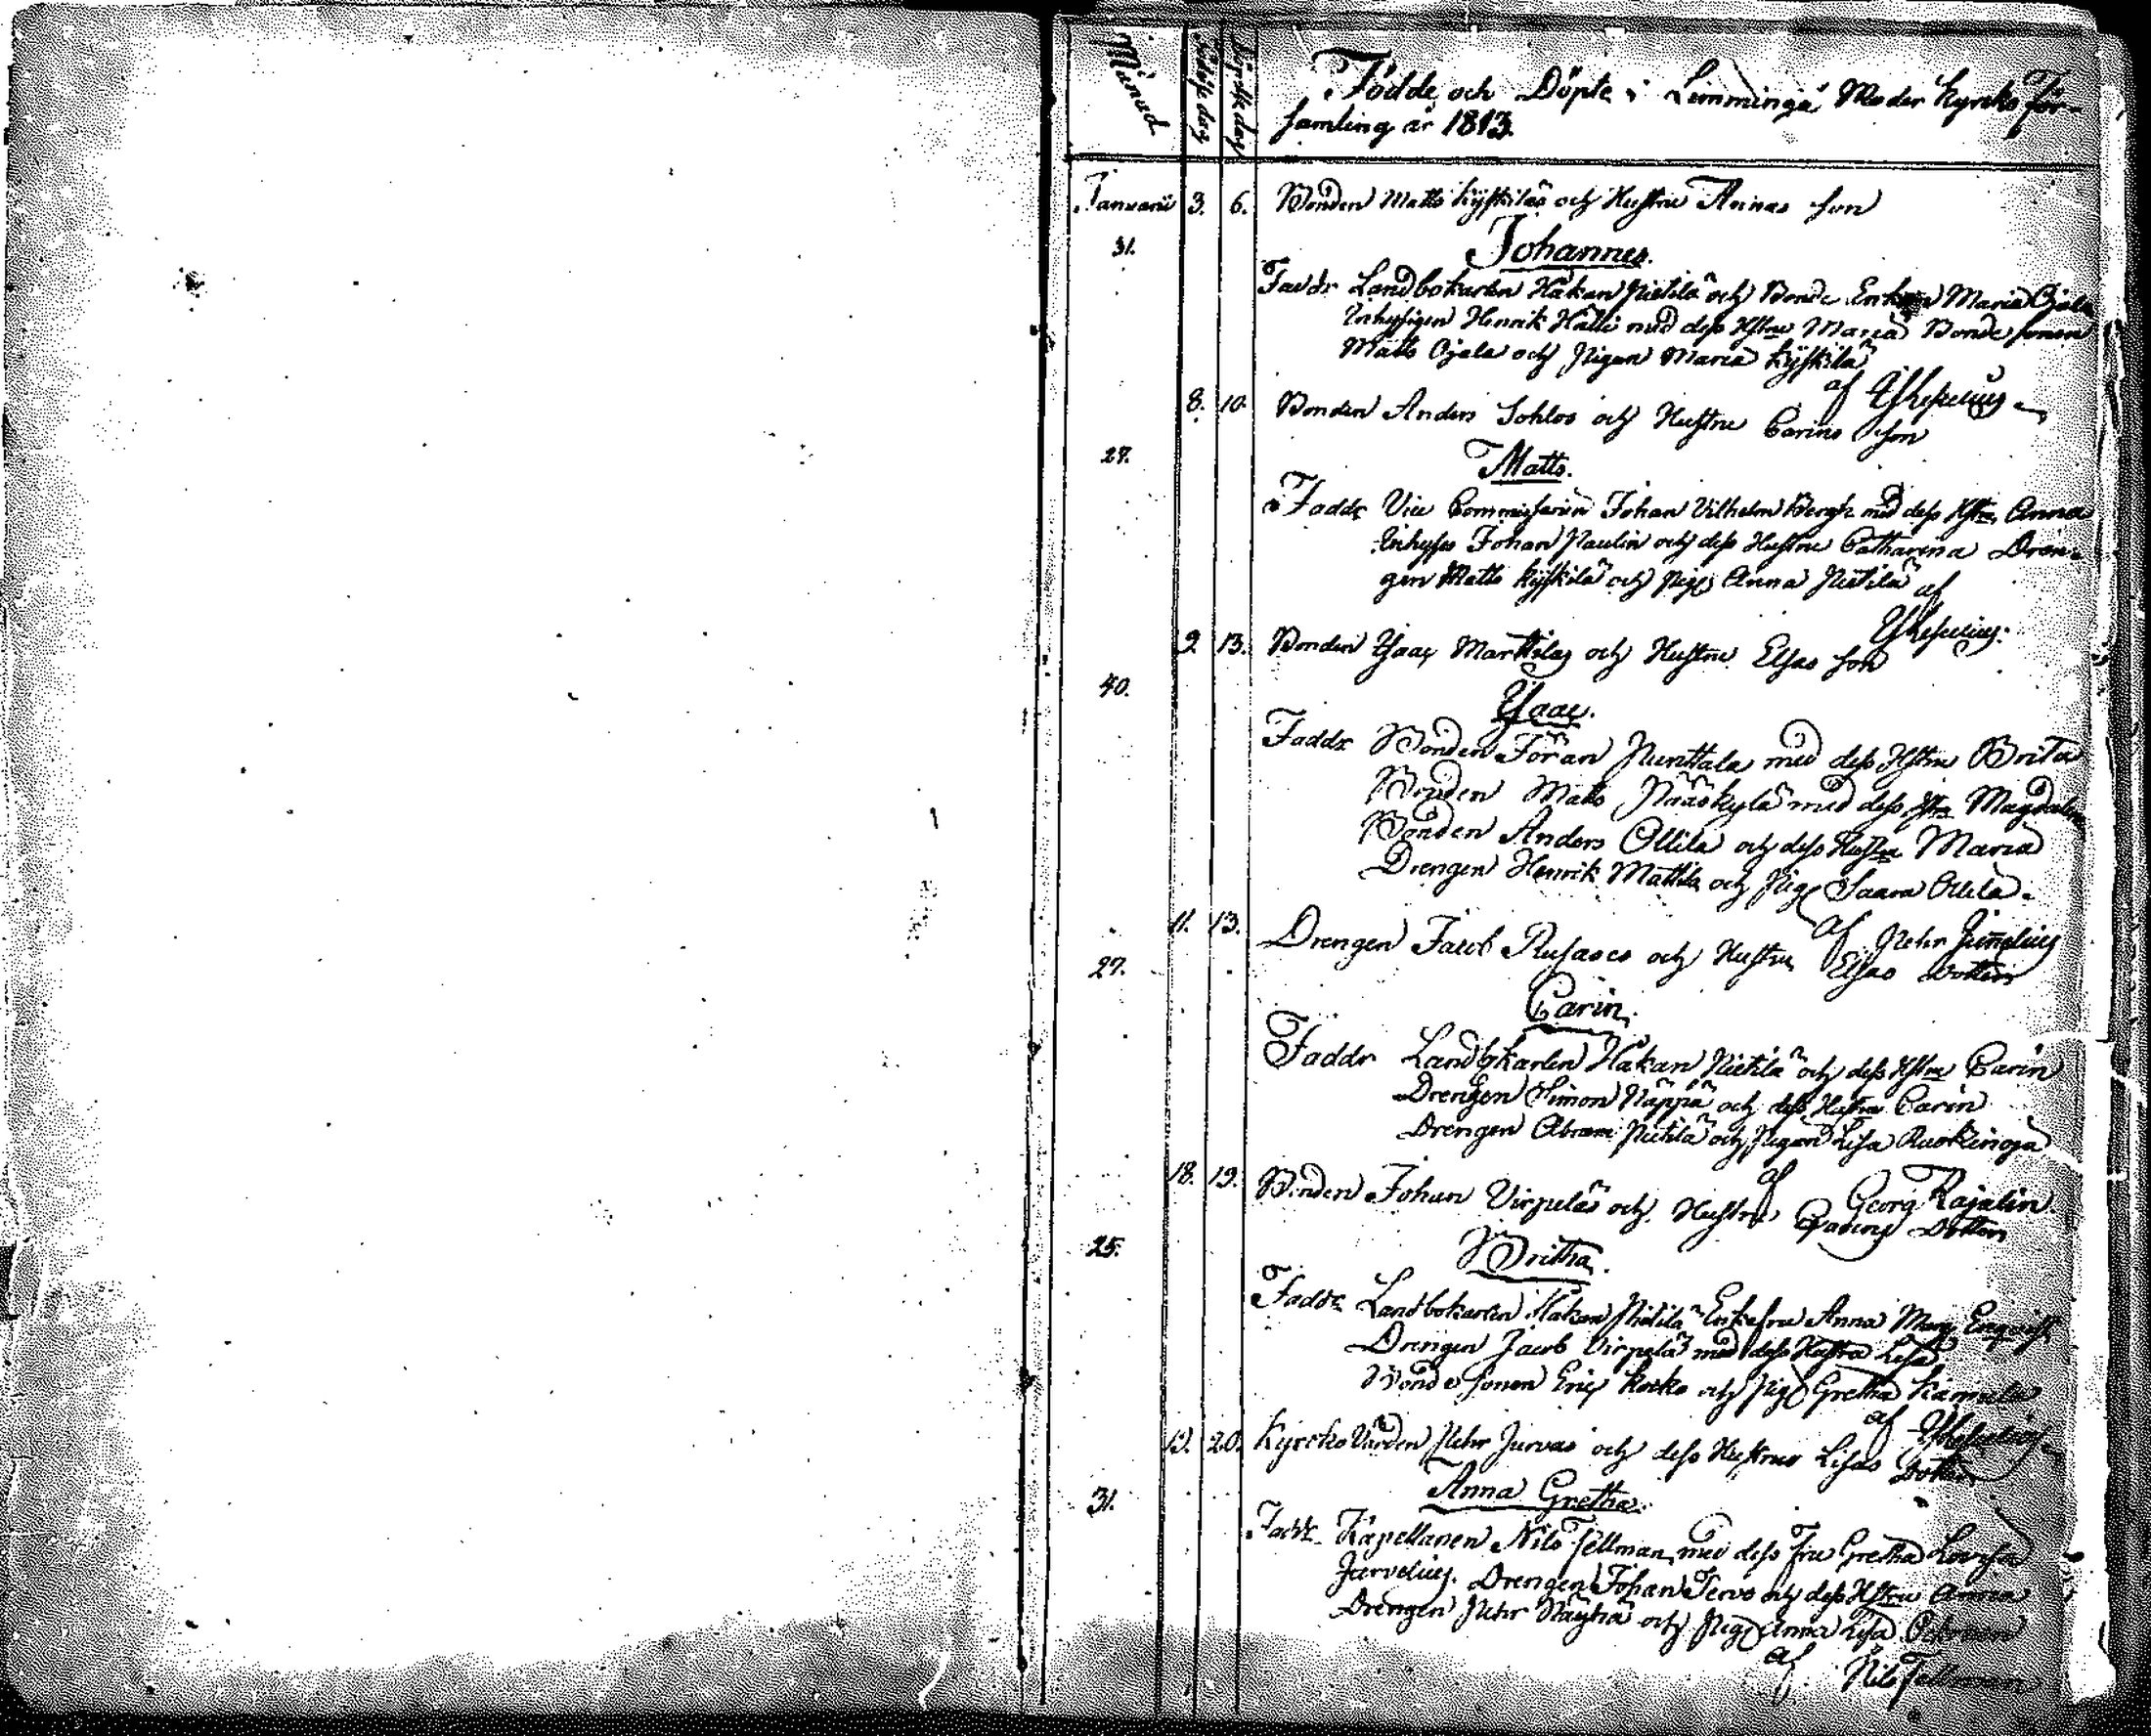 Månad
Födelse dag
Döpelse dag
Födde och Döpte i Limminga Moder Kyrko För-
samling år 1813.
Januarii 3. 6. Bonden Matts Kyskiläs och Hustru Annas son
31.
Johannes.
Faddr Landbokarlen Håkan Pietilä och Bonde Enkan Maria Ojala
Inhysigen Henrik Halli med dess Hstru Maria Bonde sonen
Matts Ojala och Pigan Maria Kyskilä
af
8. 10. Bonden Anders Sohlos och Hustru Carins son
27.
Matts.
Faddr Vice Commissarien Johan Vilhelm Bergh med dess Hstru Anna
Inhyses Johan Paulin och dess Hustru Catharina Dren-
gen Matts Kyskilä och Pig Anna Pietilä af
9. 13. Bonden Isaac Marttilas och Hustru Elsas son
40.
Isaac.
Faddr Bonden Jöran Punttala med dess Hstru Brita
Bonden Matts Pääskylä med dess Hstru Magdalena
Bonden Anders Ollila och dess Hustru Maria
Drengen Henrik Mattila och Pig Saara Ollila.
af Pehr
11. 13. Drengen Jacob och Hustru Elsas dotter
27.
Carin.
Faddr Landbokarlen Håkan Pietilä och dess Hstru Carin
Drengen Simon Näppä och dess Hustru Carin
Drengen Abram Pietilä och Pigan Lisa Ruokinoja
af Georg Rajalin
18. 19. Bonden Johan Virpeläs och Hustru Dotter
25.
Britha.
Faddr Landbokarlen Håkan Pietilä Enkefru Anna Enqvist
Drengen Jacob Virpelä med dess Hustru Lisa
Bonde sonen Eric Korko och Pig Gretha
af
19. 20. Kyrcko Värden Pehr Jurvas och dess Hustrus Lisas Dotter
31.
Anna Gretha.
Faddr Kapellanen Nils Fellman med dess Fru Gretha Lovisa
Jurvelius. Drengen Johan Tervo och dess Hstru Anna
Drengen Pehr Näyhä och Pig Anna Lisa
af Nils Fellman